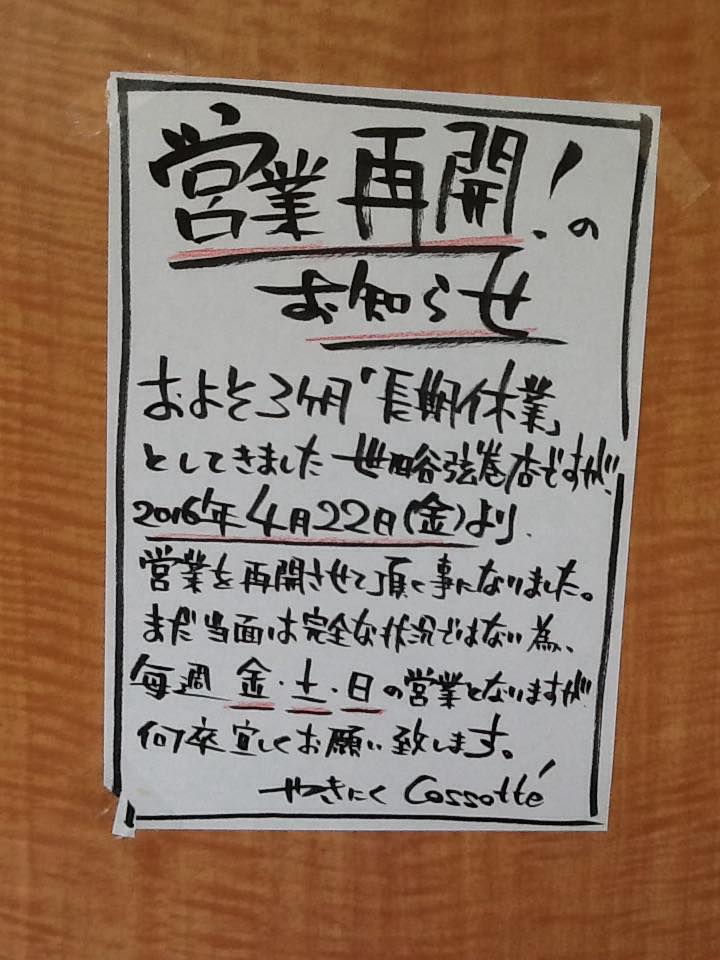 営業再開！の
お知らせ
およそ3ヶ月「長期休業」
としてきました世田谷弦巻店ですが、
2016年4月22日(金)より、
営業を再開させて頂く事になりました。
まだ当面は完全な状況ではない為、
毎週 金・土・日の営業となりますが
何卒宜しくお願い致します。
やきにく Cossotté